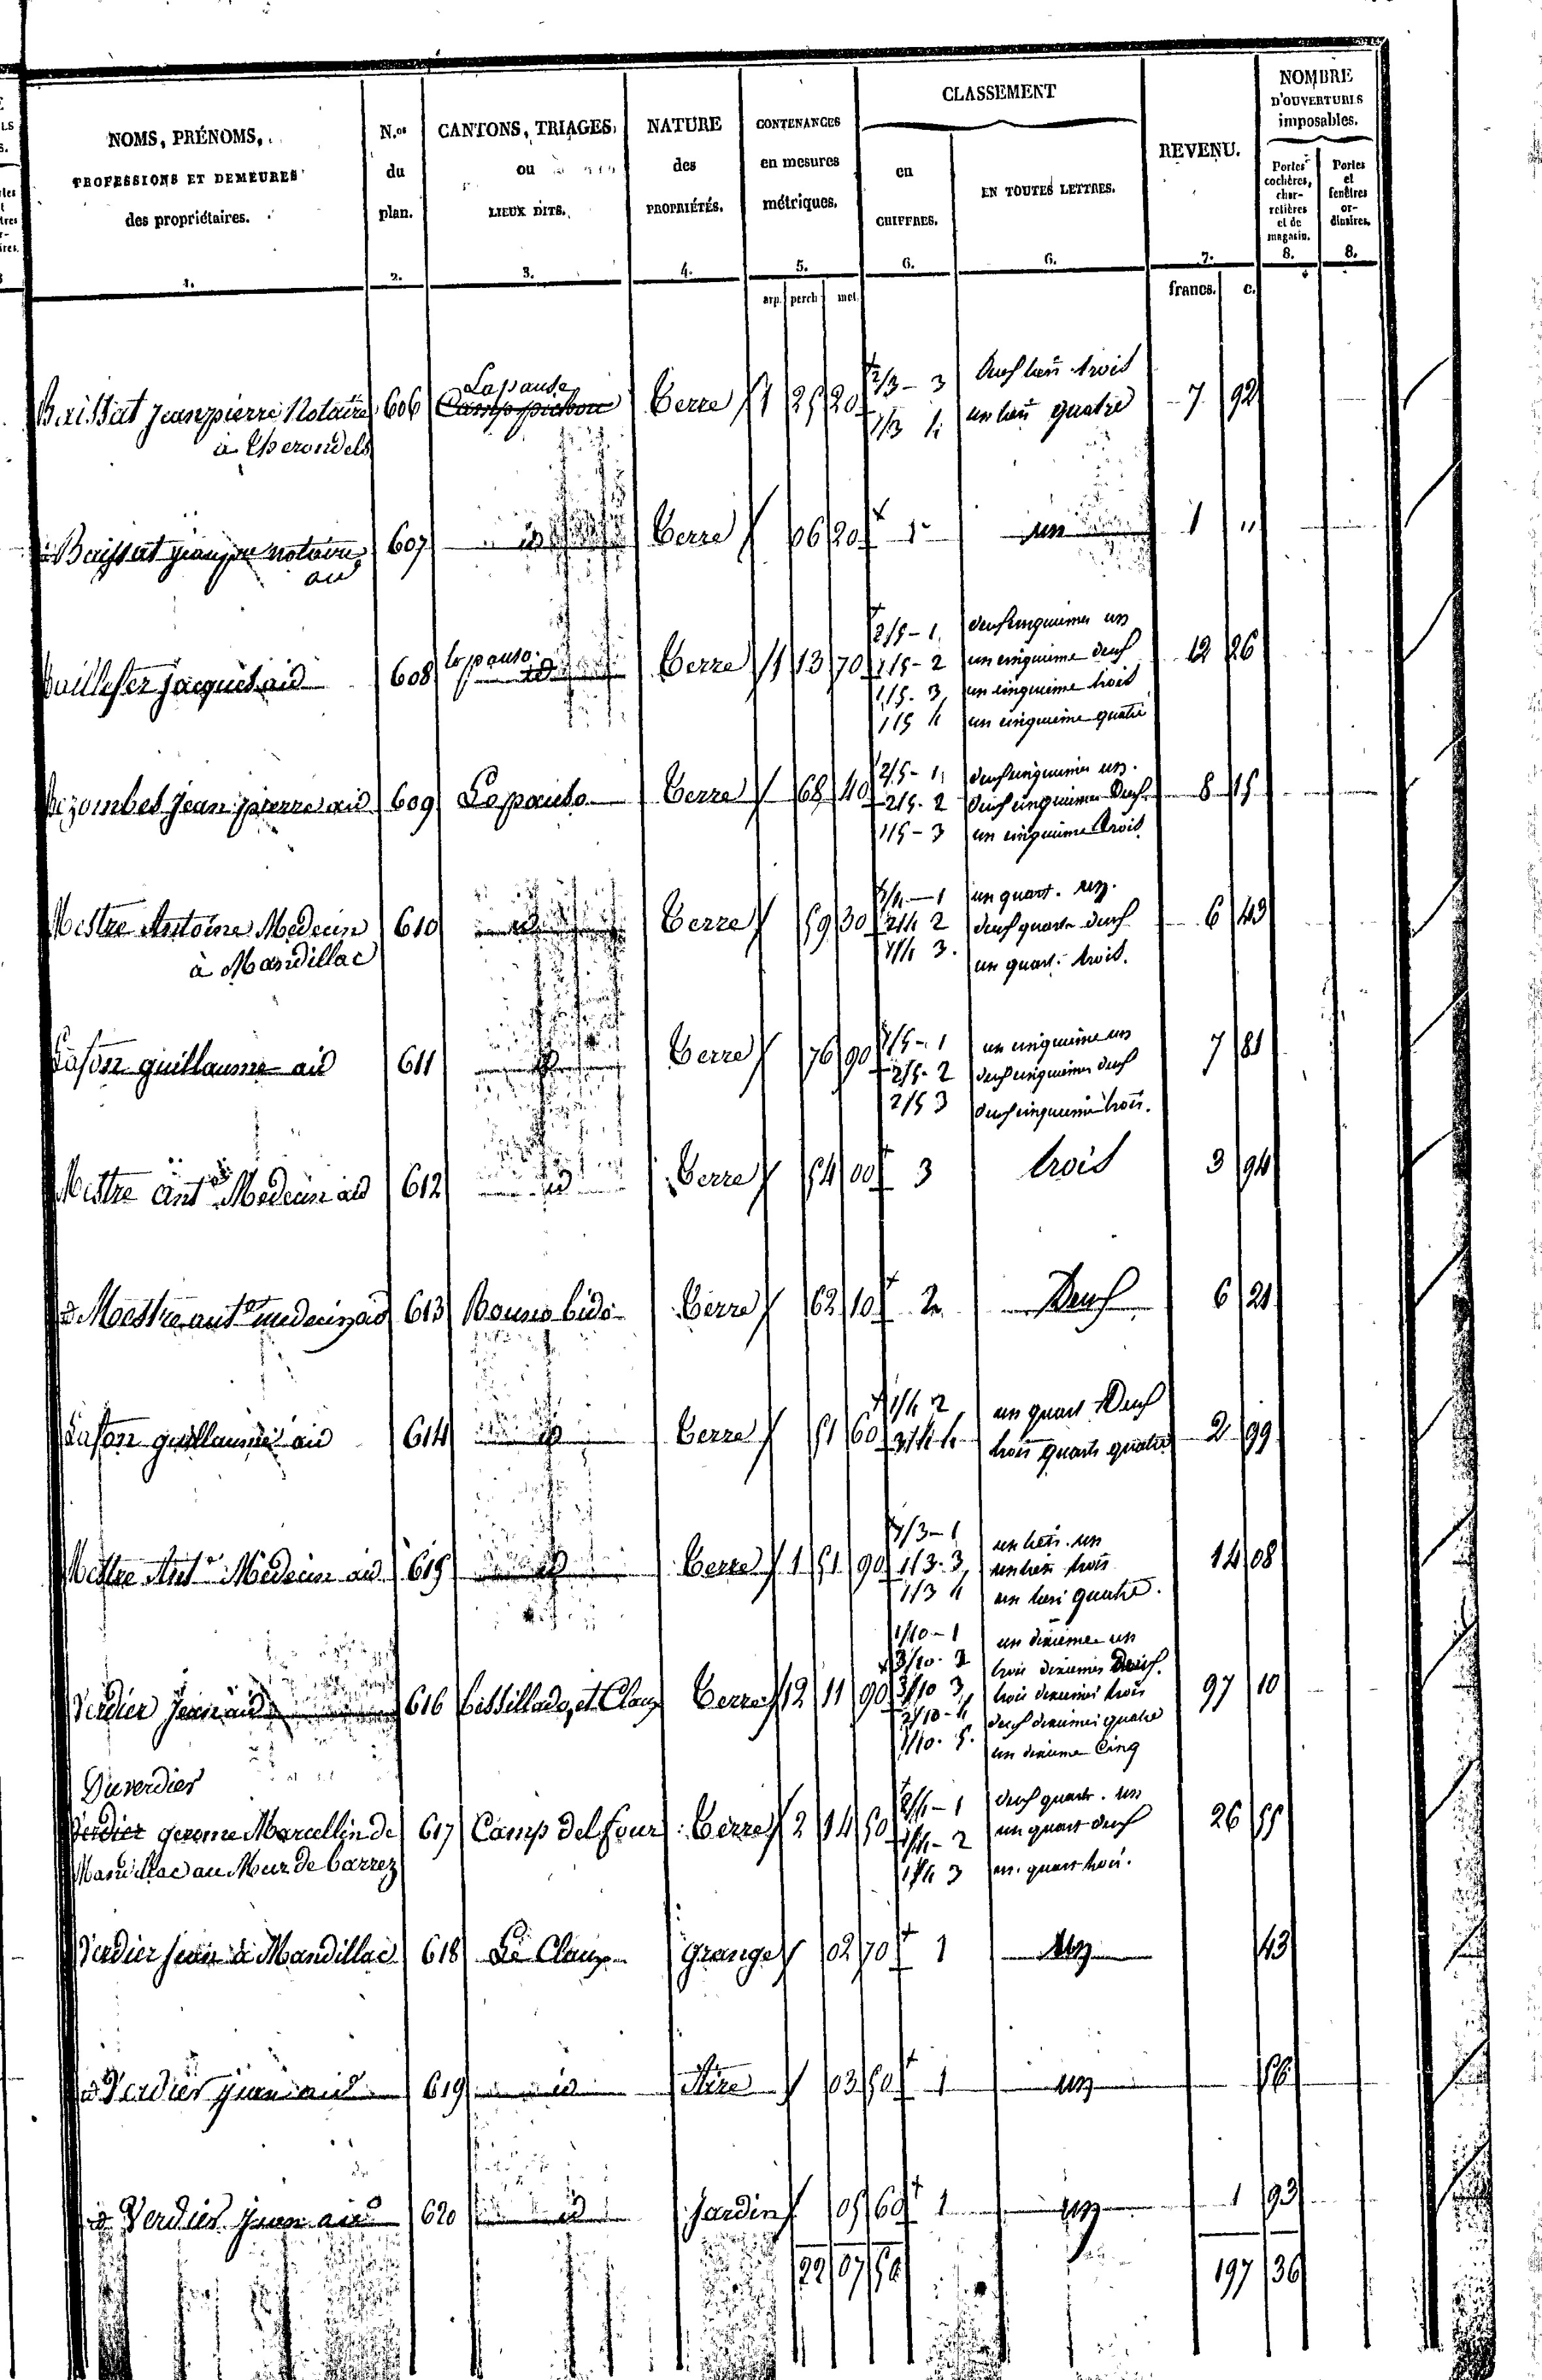 NOMS, PRÉNOMS,
PROFESSIONS ET DEMEURES
des propriétaires.
1.
N.os
du
plan.
2.
CANTONS, TRIAGES,
ou
LIEUX DITS.
3.
NATURE
des
PROPRIÉTÉS.
4.
CONTENANCES
en mesures
métriques.
5.
arp. perch met.
CLASSEMENT
en
CHIFFRES.
6.
EN TOUTES LETTRES.
6.
REVENU.
7.
francs. c.
NOMBRE
D'OUVERTURES
imposables.
Portes
cochères,
char-
retières
et de
magasin.
8.
Portes
et
fenêtres
or-
dinaires.
8.
Lapause
jeanpierre Notaire 606 Terre 1 25 20 2/3 - 3 deux tiers trois 7 92
à 1/3 4 un tiers quatre
notaire 607 id Terre 06 20 1 un 1 "
aid
jacques aid 608 lapause id Terre 1 13 70 2/5 - 1 deux cinquiemes un 12 26
1/5 - 2 un cinquieme deux
1/5 - 3 un cinquieme trois
1/5 4 un cinquieme quatre
jean pierre aid 609 Lapause Terre 68 40 2/5 - 1 deux cinquiemes un 8 15
2/5 - 2 deux cinquiemes deux
1/5 - 3 un cinquieme trois
Mestre Antoine Medecin 610 id Terre 59 30 1/4 - 1 un quart un 6 43
à Mandillac 2/4 2 deux quarts deux
1/4 3 un quart trois
Lafon guillaume aid 611 id Terre 76 90 1/5 - 1 un cinquieme un 7 81
2/5 - 2 deux cinquiemes deux
2/5 3 deux cinquieme trois
Mestre Ant Medecin aid 612 id Terre 54 00 3 trois 3 94
Mestre ant medecin aid 613 Terre 62 10 2 Deux 6 21
Lafon guillaume aid 614 id Terre 51 60 1/4 2 un quart Deux 2 99
3/4 4 trois quarts quatre
Mestre Ant Medecin aid 615 id Terre 1 51 90 1/3 - 1 un tiers un 14 08
1/3 - 3 un tiers trois
1/3 4 un tiers quatre
1/10 - 1 un dixieme un
3/10 - 2 trois dixiemes Deux
Verdier jean aid 616 et Claux Terre 12 11 90 3/10 3 trois dixiemes trois 97 10
2/10 - 4 deux dixiemes quatre
1/10 - 5 un dixieme Cinq
Duverdier
Verdier gerome Marcellin de 617 Camp del four Terre 2 14 50 2/4 - 1 deux quarts un 26 55
Mandillac au Mur de barrez 1/4 - 2 un quart deux
1/4 3 un quart trois
Verdier jean à Mandillac 618 Le Claux grange 02 70 1 un 43
Verdier jean aid 619 id Aire 03 50 1 un 56
Verdier jean aid 620 id Jardin 05 60 1 un 1 93
22 07 50 197 36